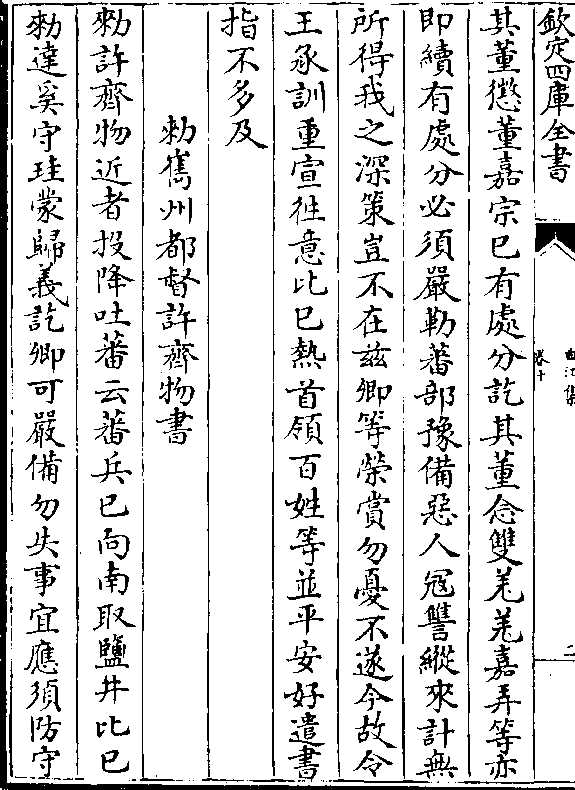 欽定四庫全書
曲江集
卷十
二
其董懲董嘉宗已有處分訖其董念雙羌羌嘉弄等亦
即續有處分必須嚴勒蕃部豫備惡人寇讐縱來計無
所得我之深策豈不在兹卿等榮賞勿憂不遂今故令
王承訓重宣徃意比已熱首領百姓等並平安好遣書
指不多及
勑嶲州都督許齊物書
勑許齊物近者投降吐蕃云蕃兵已向南取鹽井比已
勑達奚守珪蒙歸義訖卿可嚴備勿失事宜應須防守